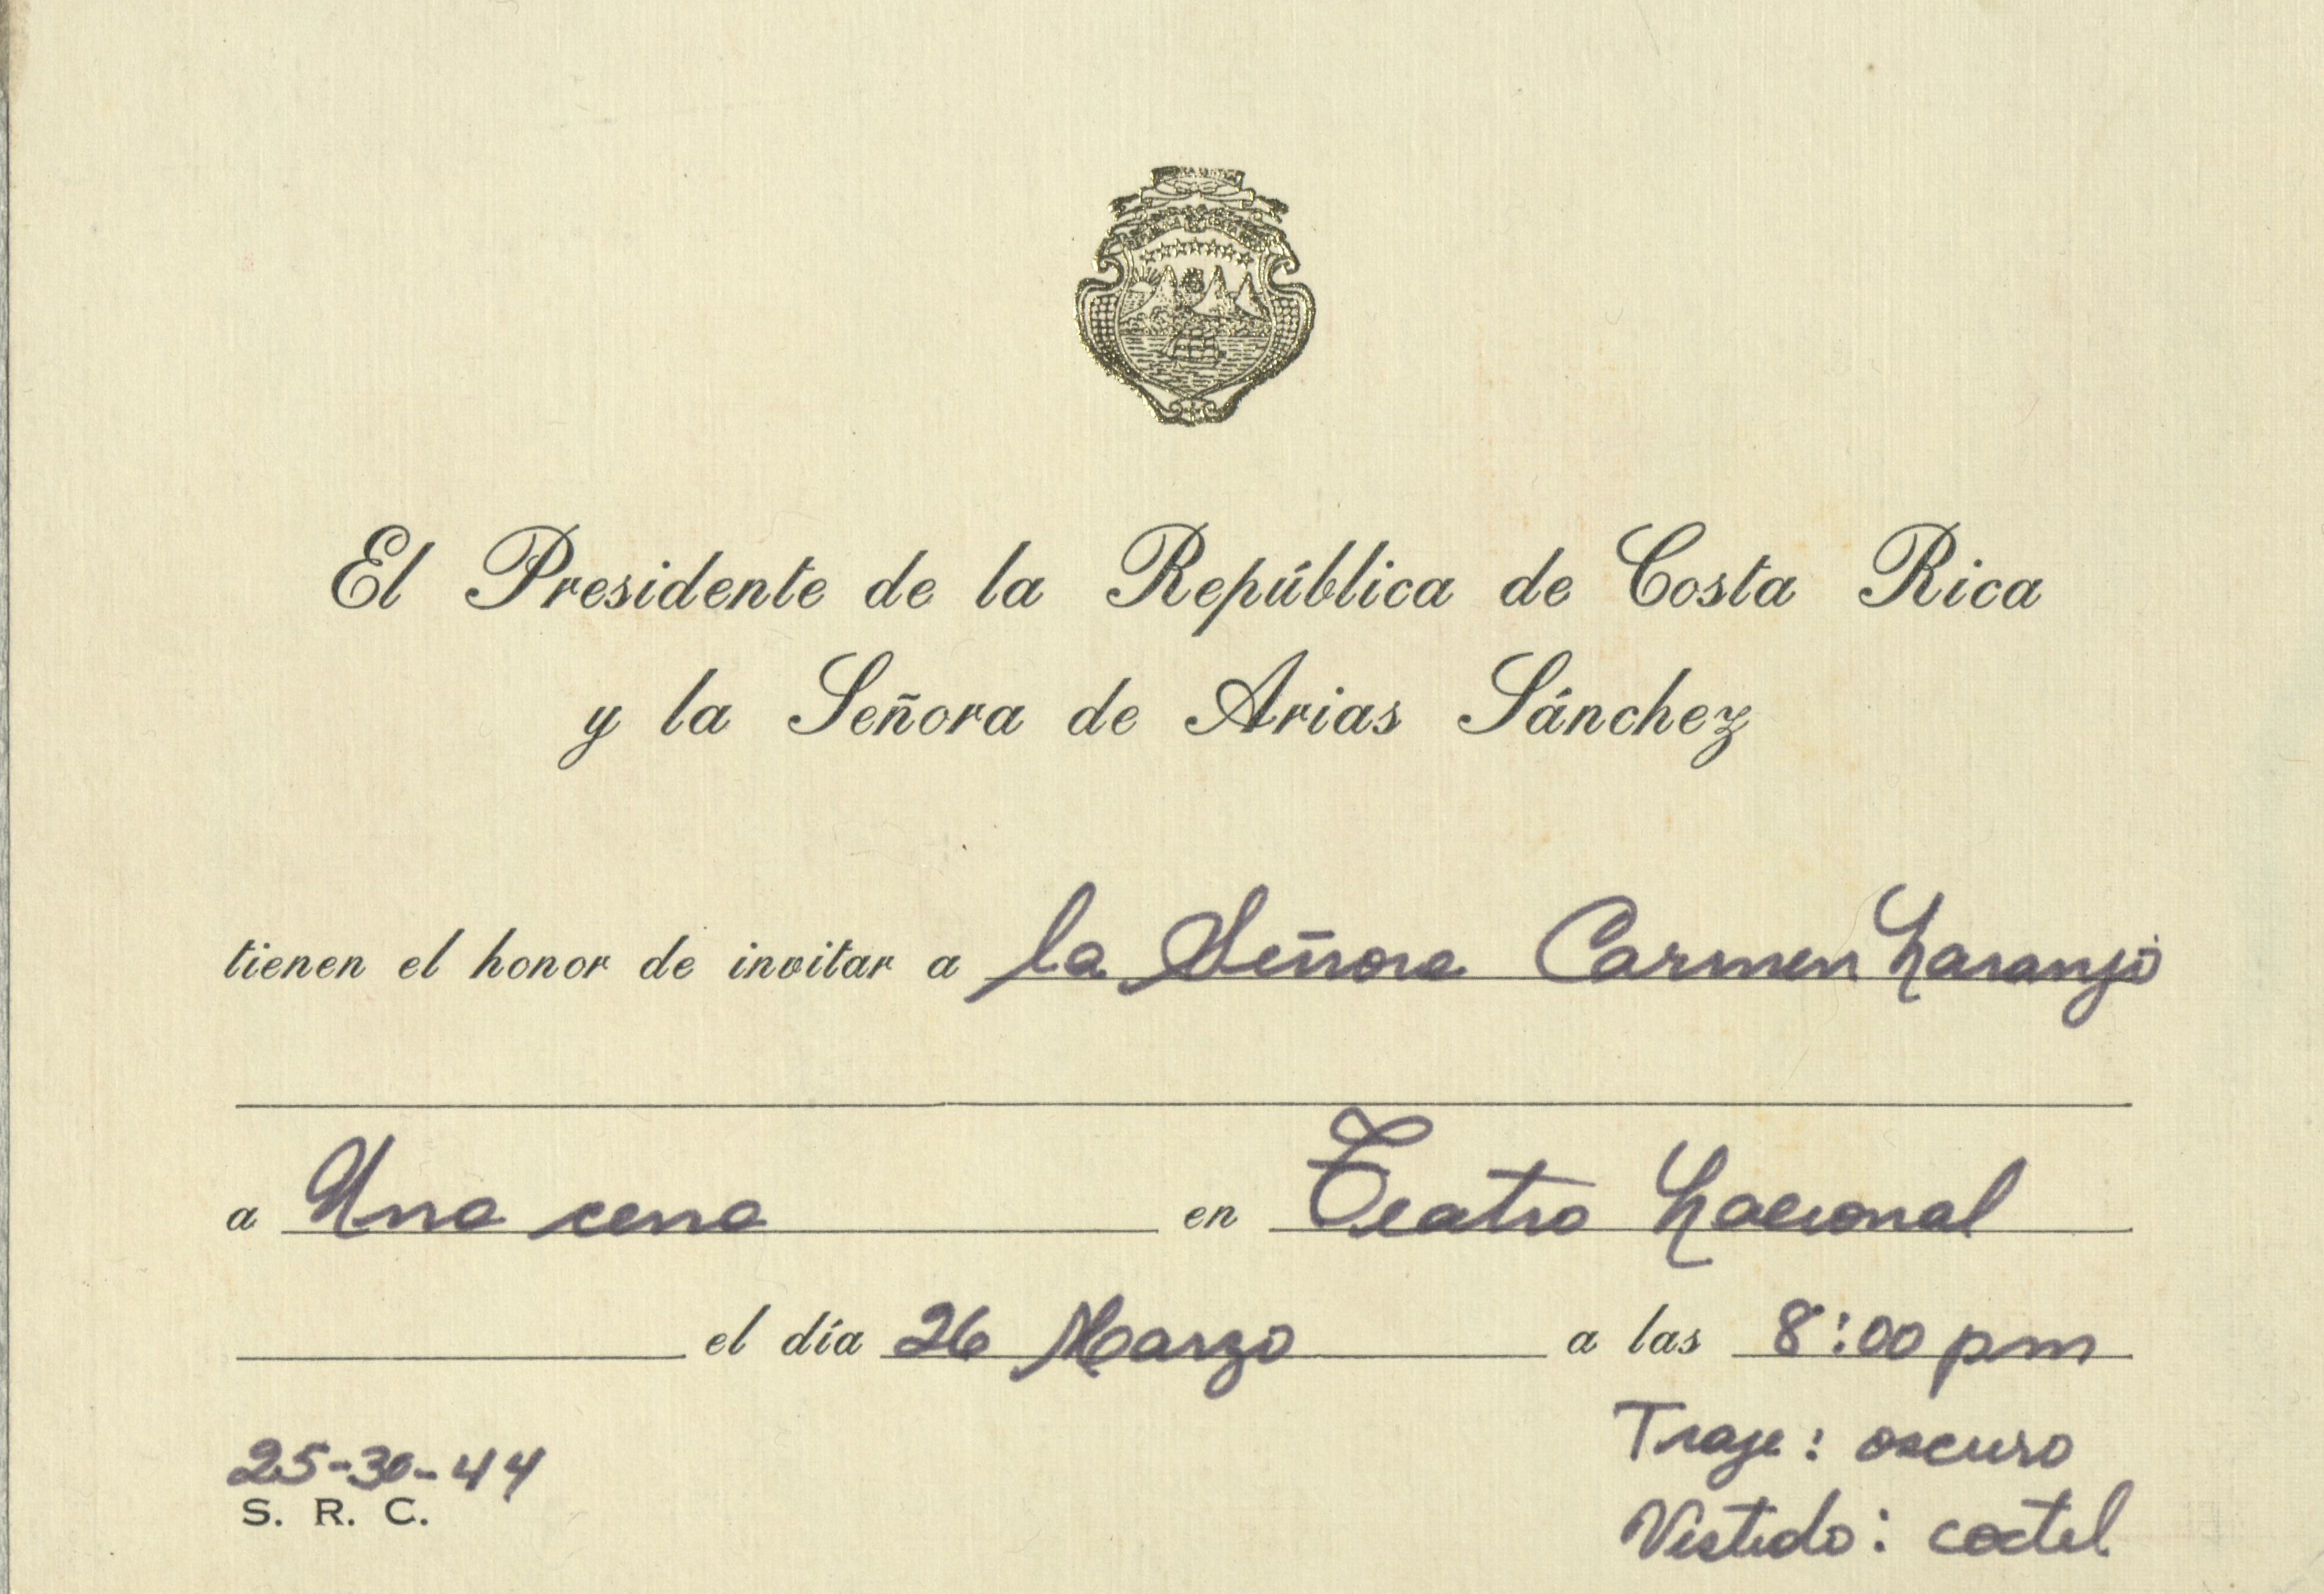 El Presidente de la República de Costa Rica
y la Señora de Arias Sánchez
tienen el honor de invitar a la Señora Carmen Naranjo
a Una cena en Teatro Nacional
el día 26 Marzo a las 8:00 pm
Traje: oscuro
25-30-44
S. R. C.
Vestido: coctel